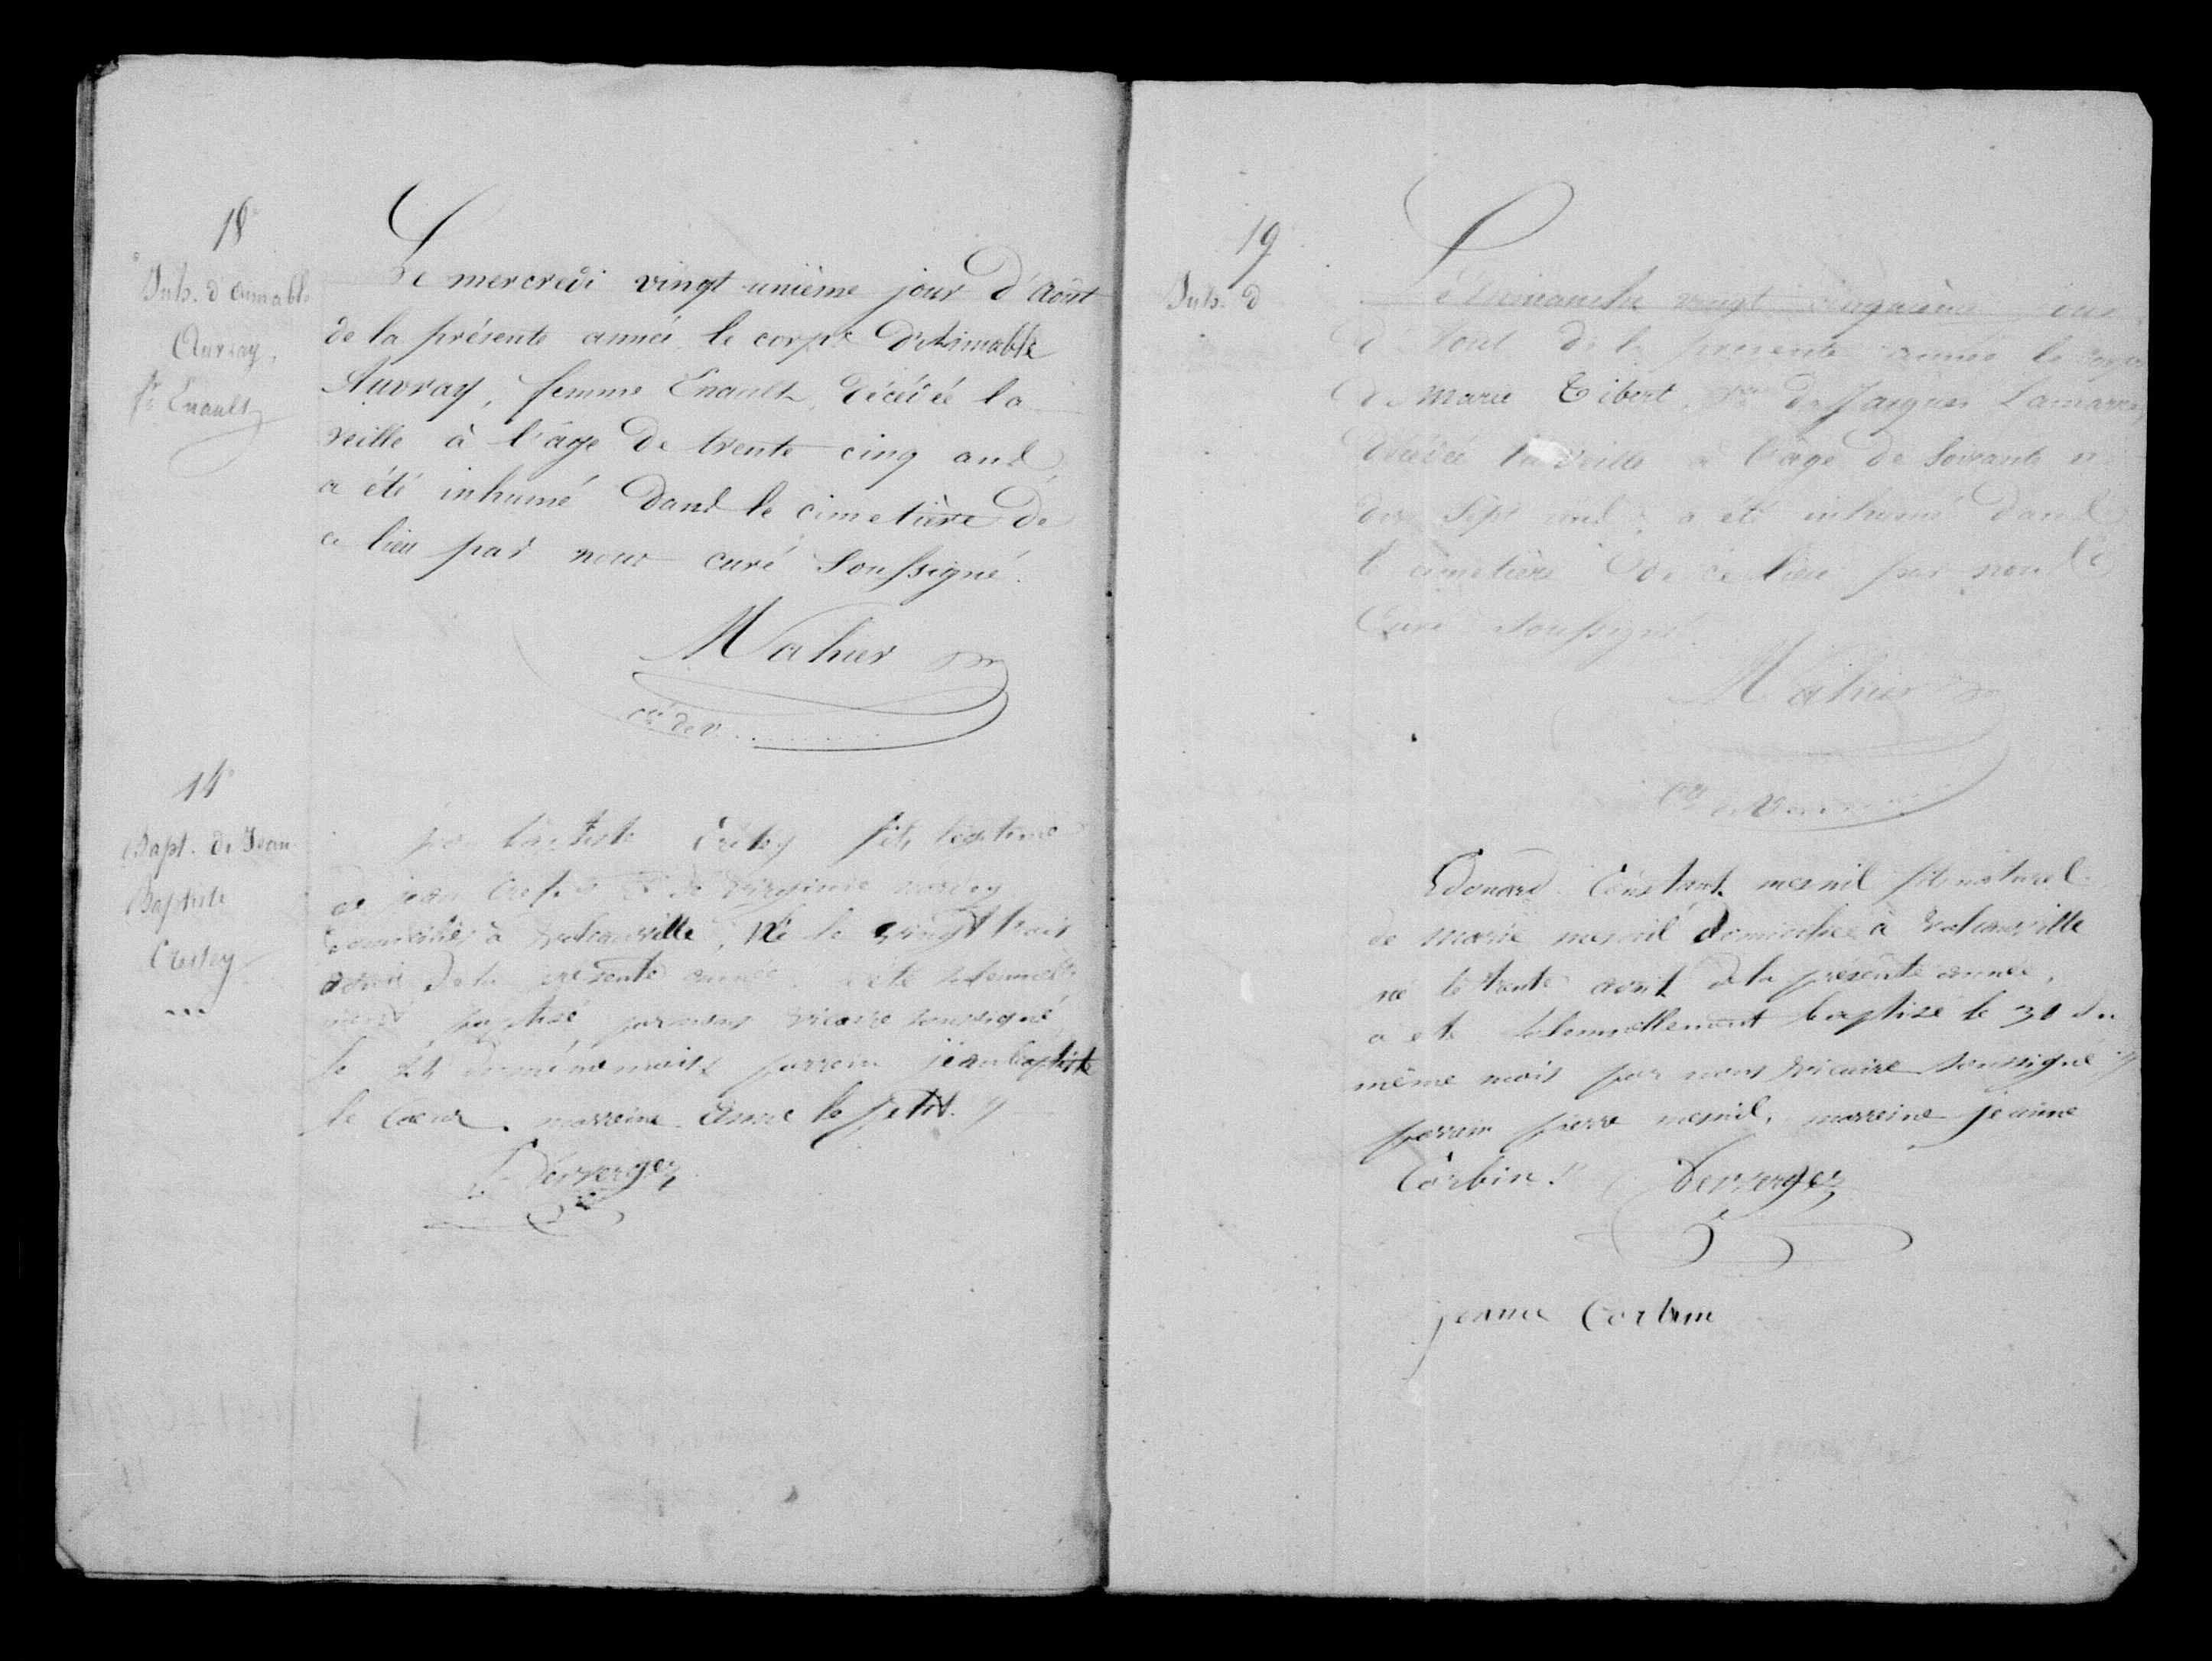 18
Inh. d'Aimable
Auvray,
fe Enault
Le mercredi vingt unième jour d'Août
de la présente année le corps d'Aimable
Auvray, femme Enault, décédée la
veille à l'âge de trente cinq ans
a été inhumé dans le cimetière de
ce lieu par nous curé soussigné.
Mahier
cé de V.
14
Bapt. de Jean
Baptiste
Crestey
jean baptiste fils légitime
de jean de virginie
domiciliés à né le vingt trois
de la présente année a été solennelle
ment baptisé par nous vicaire soussigné
le 24 du même mois parrein jean baptiste
le Cœur. marreine le petit.
Desverges
19
Inh. d
Le Dimanche vingt cinquième jour
d'Août de la présente année le corps
de Marie Tibert, de Jacques
décédée la veille à l'âge de soixante
dix sept ans, a été inhumé dans
le cimetière de ce lieu par nous
Curé soussigné
Mahier
cé de V
Edouard Constant mesnil fils naturel
de Marie mesnil domiciliée à
né le trente août de la présente année,
a été solennellement baptisé le 30 du
même mois par nous vicaire soussigné
parrein pierre mesnil, marreine jeanne
Corbin. Desverges
jeanne Corbin